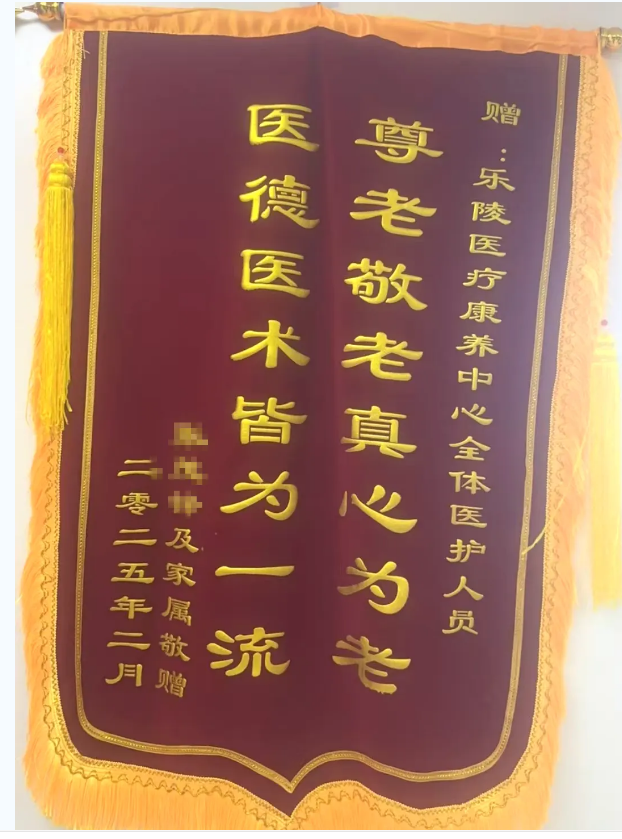 赠：乐陵医疗康养中心全体医护人员
尊老敬老真心为老
医德医术皆为一流
及家属敬赠
二零二五年二月